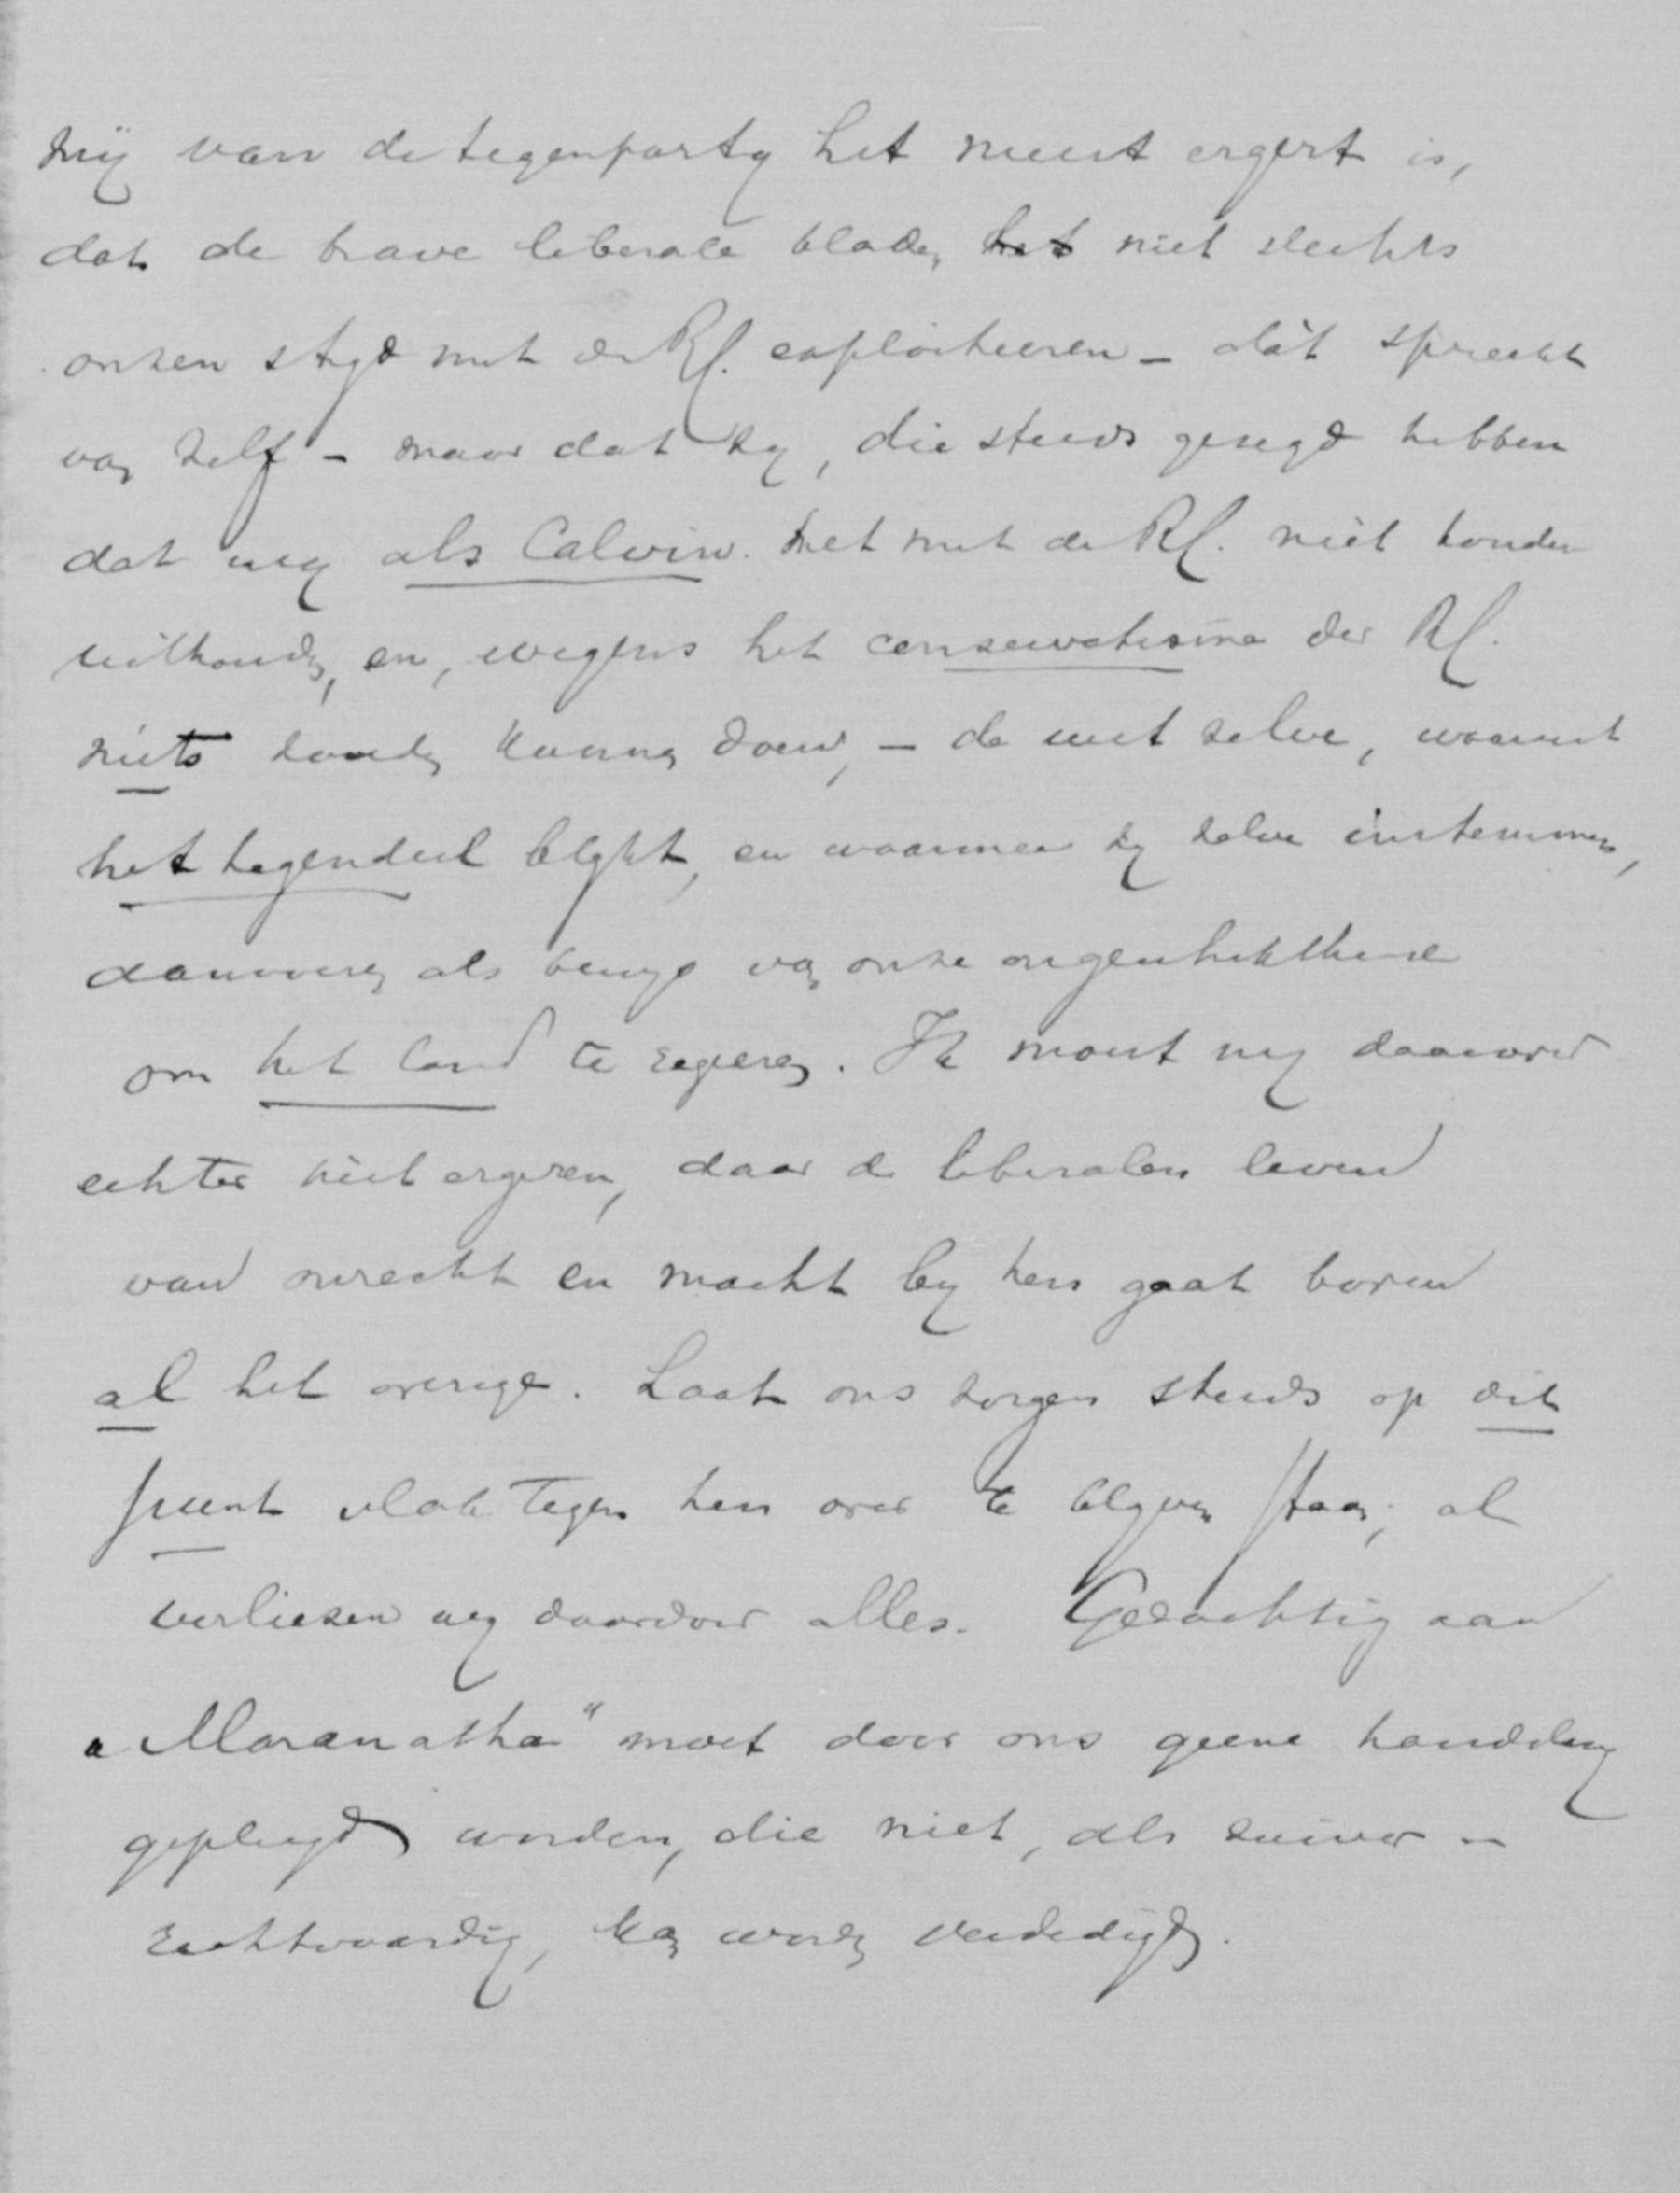 mij van de tegenparty het meest ergert is,
dat de brave liberale bladen het niet slechts
onzen styd met de Rf. exploiteeren - dàt spreekt
van zelf - maar dat zy, die steeds gezegd hebben
dat wy als Calvin. het met de Rf. niet zouden
uithouden, en, wegens het conservatisme der Rf.
niets zouden kunnen doen, - de wet zelve, waaruit
het tegendeel blykt, en waarmee zy zelve instemmen,
aanvoeren als bewys van onze ongeschiktheid
om het land te regeren. Ik moet my daarover
echter niet ergeren, daar de liberalen leven
van onrecht en macht by hen gaat boven
al het overige. Laat ons zorgen steeds op dit
punt vlak tegen hen over te blyven staan; al
verliezen wy daardoor alles. Gedachtig aan
„Maranatha" moet door ons geene handeling
gepleegd worden, die niet, als zuiver -
rechtvaardig, kan worden verdedigd.